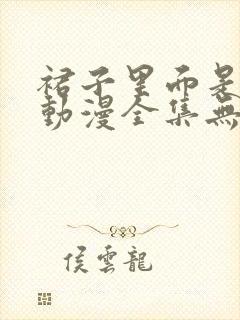 裙子里面是
動漫全集無
侯雲龍